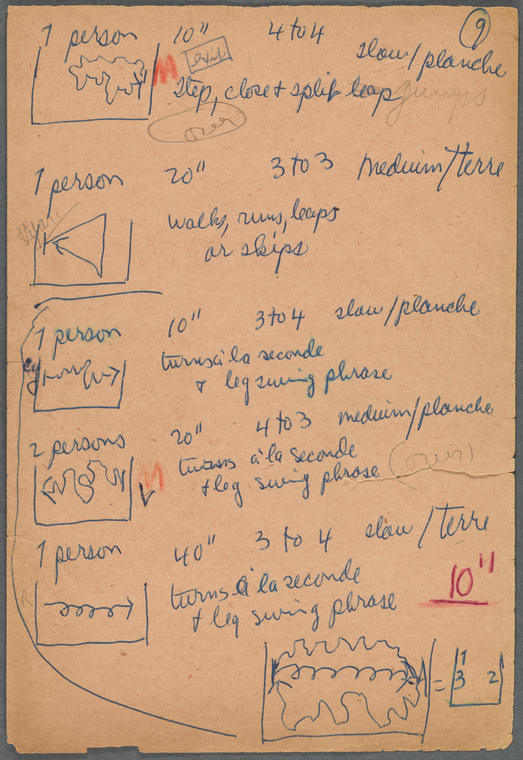 9
1 person 10" 4 to 4 slow/planche
M step, close + split leap jumps
over
1 person 20" 3 to 3 medium/terre
walks, runs, leaps
or skips
1 person 10" 3 to 4 slow/planche
turns à la seconde
+ leg swing phrase
2 persons 20" 4 to 3 medium/planche
M turns à la seconde
+ leg swing phrase (over)
1 person 40" 3 to 4 slow/terre
turns à la seconde 10"
+ leg swing phrase
= 1
3 2